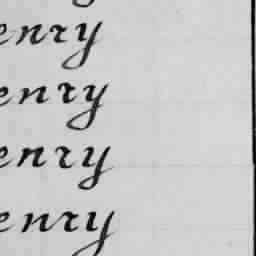 enry
enry
enry
enry